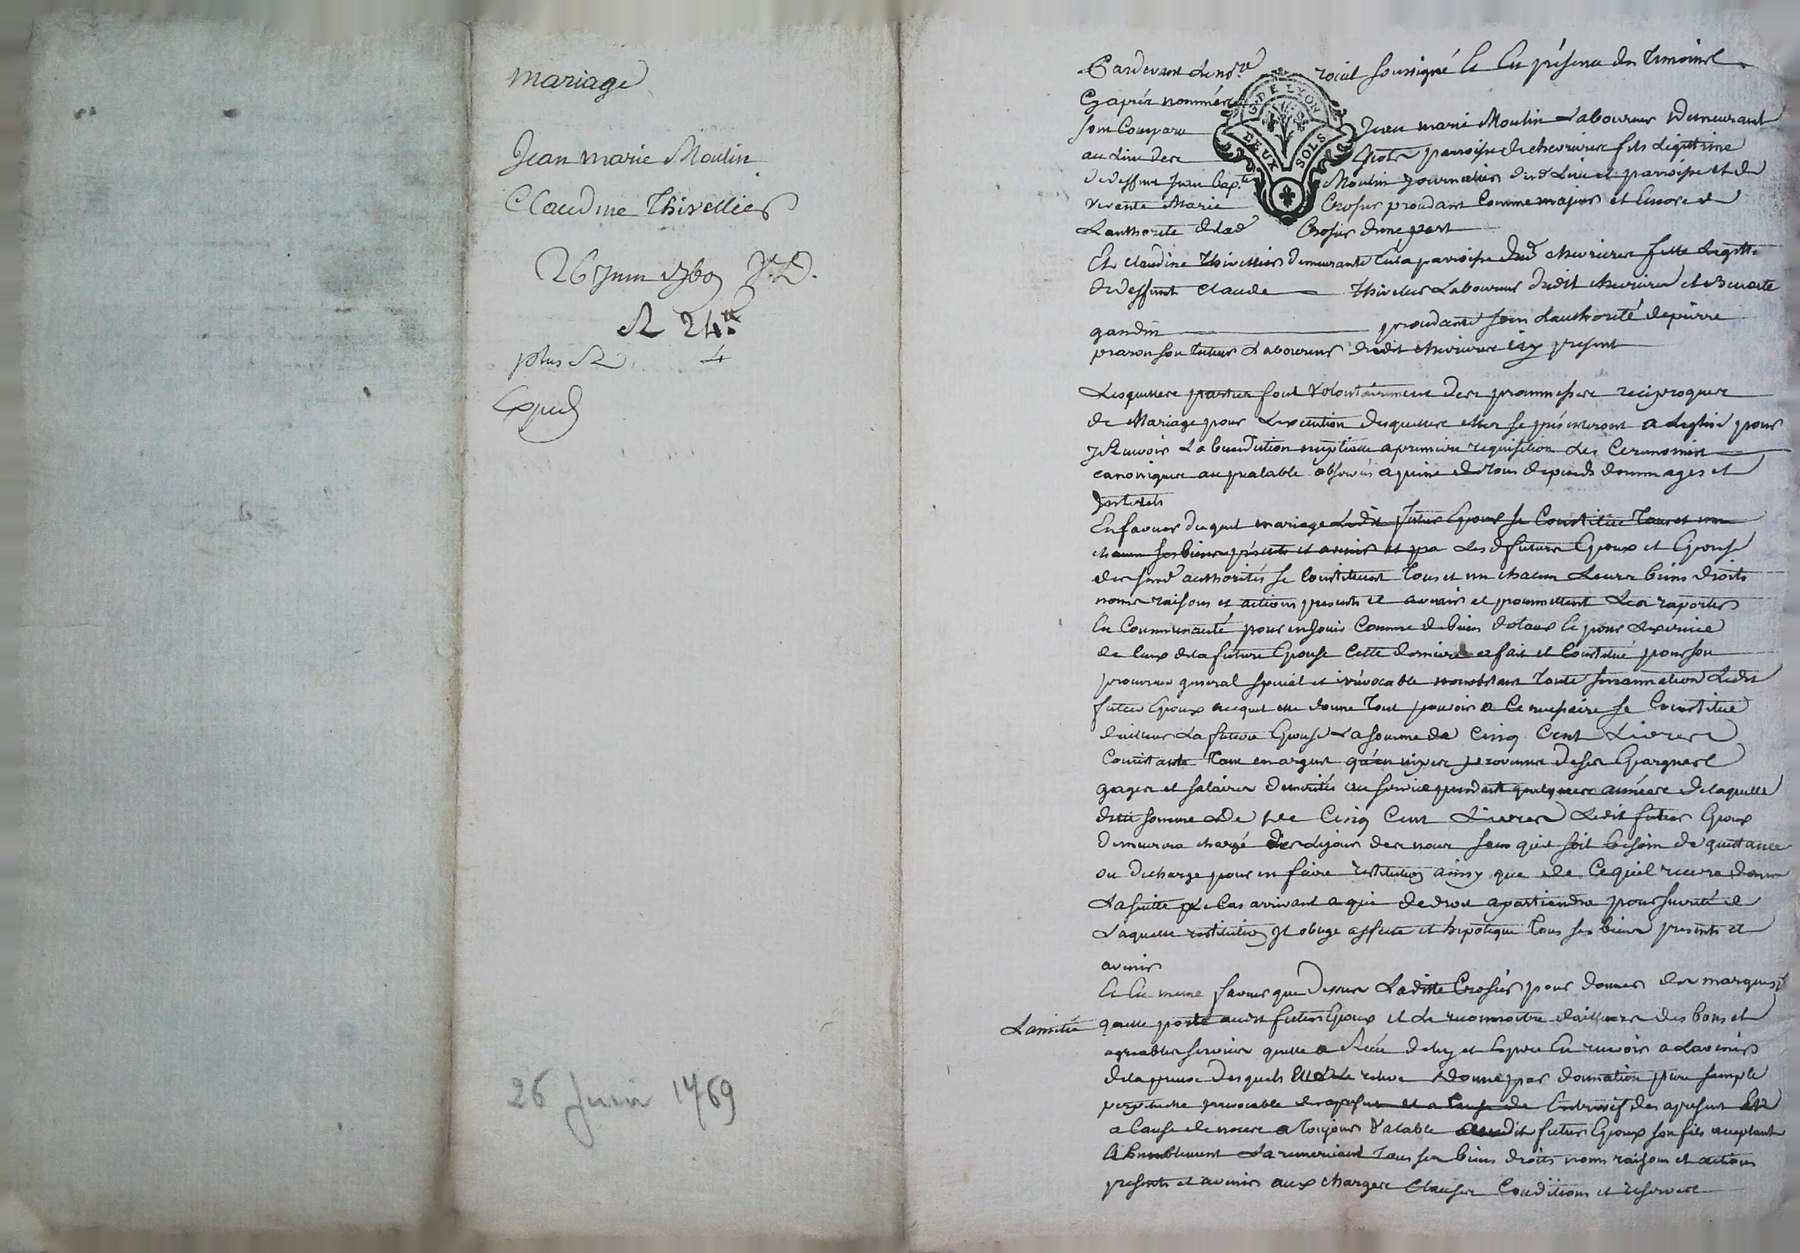 mariage
Jean marie Moulin
Claudine Thivellier
26 Juin 1769
R 24
plus R 4
Exped
26 Juin 1769
Pardevant le no.re roial soussigné Et En présence des temoins
Cyaprès nommés
G. DE LYON
DEUX SOLS
sont Comparu Jean marie Moulin Laboureur Demeurant
au Lieu de paroisse de chevriere fils Legitime
de deffunt Jean Bap.te Moulin journalier dud Lieu et paroisse et de
vivante Marie Crosier procedant Comme majeur et Encore de
L'authorité de lad Crosier d'une part
Et Claudine Thivellier demeurante En la paroisse dud chevriere fille Legitt.
de deffunt Claude Thivelier Laboureur dudit chevriere et Benoite
gandin procedante sous L'authorité de pierre
son tuteur Laboureur dudit chevriere icy present
Lesquelles parties font volontairement des prommesses reciproques
de Mariage pour L'execution desquelles elles se présenteront a Leglise pour
y Recevoir La benediction nuptialle a premiere requisition Les Ceremonies
canoniques au prealable observés a peine de tous depends dommages et
Interets
En faveur duquel mariage Ledit futur Epoux se Constitue Tous et un
chacun ses biens présents et avenir et pro Lesd futurs Epoux et Epouse
desd authorités se Constituent Tous et un chacun Leurs biens droits
noms raisons et actions presents et avenir et promettent Les raporter
En Communauté pour en Jouir Comme de biens dotaux Et pour Lexercice
de Ceux de la future Epouse Cette derniere a fait et Constitué pour son
procureur general special et irrévocable nonobstant Toute surannation Ledit
futur Epoux auquel elle donne Tout pouvoir a Ce necessaire se Constitue
d'ailleurs La future Epouse La somme de Cinq Cent Livres
Consistante Tant en argent qu'en nipes provenues de ses Epargnes
gages et salaires Demerités au service pendant quelques années de laquelle
ditte somme de Cinq Cent Livres Ledit futur Epoux
demeurera chargé sans qu'il soit besoin de quittance
ou decharge pour en faire restitution ainsy que de Cequil recevra dans
La suitte Le Cas arrivant a qui de droit apartiendra pour sureté de
Laquelle restitution Il oblige affecte et hipoteque Tous ses biens presents et
avenir
Et En meme faveur que dessus Laditte Crosier pour donner des marques de
Lamitié quelle porte audit futur Epoux et Le reconnoitre dailleurs des bons et
agreables services quelle a Recu de luy et Espere En recevoir a Lavenir
de la preuve desquels Elle Le releve donne par donnation pure simple
perpetuelle irrevocable
a Cause de noces a toujours Valable audit futur Epoux son fils acceptant
et humblement La remerciant Tous ses biens droits noms raisons et actions
presents et avenir aux charges Clauses Conditions et reserves